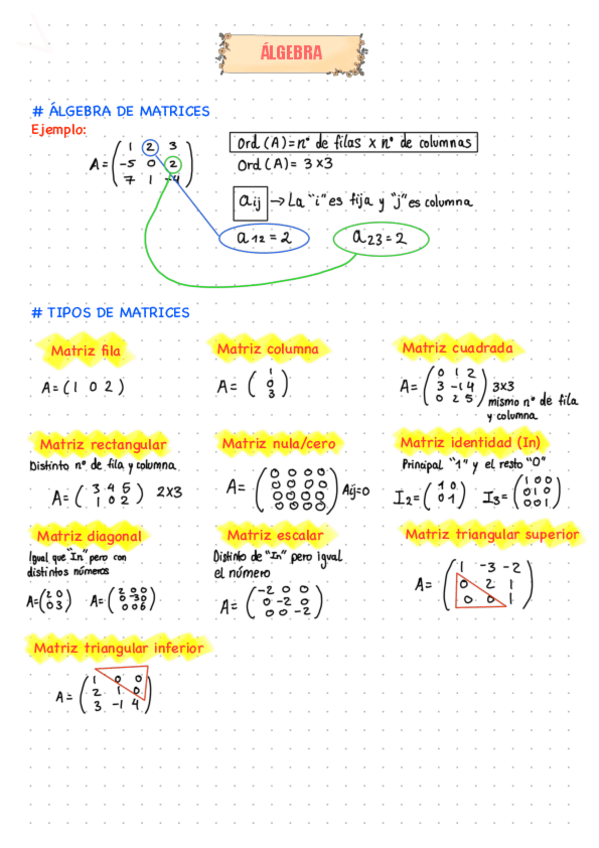 ÁLGEBRA
# ÁLGEBRA DE MATRICES
Ejemplo:
A = ( 1 2 3
-5 0 2
7 1 -4 )
Ord (A) = nº de filas x nº de columnas
Ord (A) = 3 x 3
aij → La "i" es fija y "j" es columna
a12 = 2
a23 = 2
# TIPOS DE MATRICES
Matriz fila
A = (1 0 2)
Matriz columna
A = ( 1
0
3 )
Matriz cuadrada
A = ( 0 1 2
3 -1 4
0 2 5 ) 3x3
mismo nº de fila
y columna
Matriz rectangular
Distinto nº de fila y columna
A = ( 3 4 5
1 0 2 ) 2x3
Matriz nula/cero
A = ( 0 0 0 0
0 0 0 0
0 0 0 0
0 0 0 0 ) Aij=0
Matriz identidad (In)
Principal "1" y el resto "0"
I2 = ( 1 0
0 1 )
I3 = ( 1 0 0
0 1 0
0 0 1 )
Matriz diagonal
Igual que "In" pero con
distintos números
A = ( 2 0
0 3 )
A = ( 2 0 0
0 -3 0
0 0 6 )
Matriz escalar
Distinto de "In" pero igual
el número
A = ( -2 0 0
0 -2 0
0 0 -2 )
Matriz triangular superior
A = ( 1 -3 -2
0 2 1
0 0 1 )
Matriz triangular inferior
A = ( 1 0 0
2 1 0
3 -1 4 )